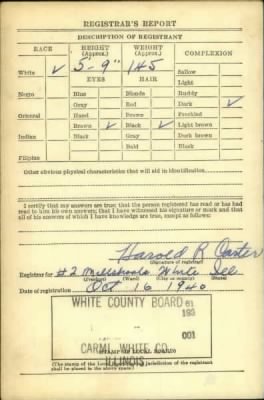 REGISTRAR'S REPORT
DESCRIPTION OF REGISTRANT
RACE HEIGHT (Approx.) WEIGHT (Approx.) COMPLEXION
White ✓ 5'-9" 145 Sallow
EYES HAIR Light
Negro Blue Blonde Ruddy
Gray Red Dark ✓
Oriental Hazel Brown Freckled
Brown ✓ Black ✓ Light brown
Indian Black Gray Dark brown
Bald Black
Filipino
Other obvious physical characteristics that will aid in identification
I certify that my answers are true; that the person registered has read or has had
read to him his own answers; that I have witnessed his signature or mark and that
all of his answers of which I have knowledge are true, except as follows:
Harold R
(Signature of registrar)
Registrar for #2 Mill Shoals White Ill
(Precinct) (Ward) (City or county) (State)
Date of registration Oct 16 1940
WHITE COUNTY BOARD 61
193
001
CARMI, WHITE CO.
ILLINOIS
(STAMP OF LOCAL BOARD)
(The stamp of the Local Board jurisdiction of the registrant
shall be placed in the above space.)